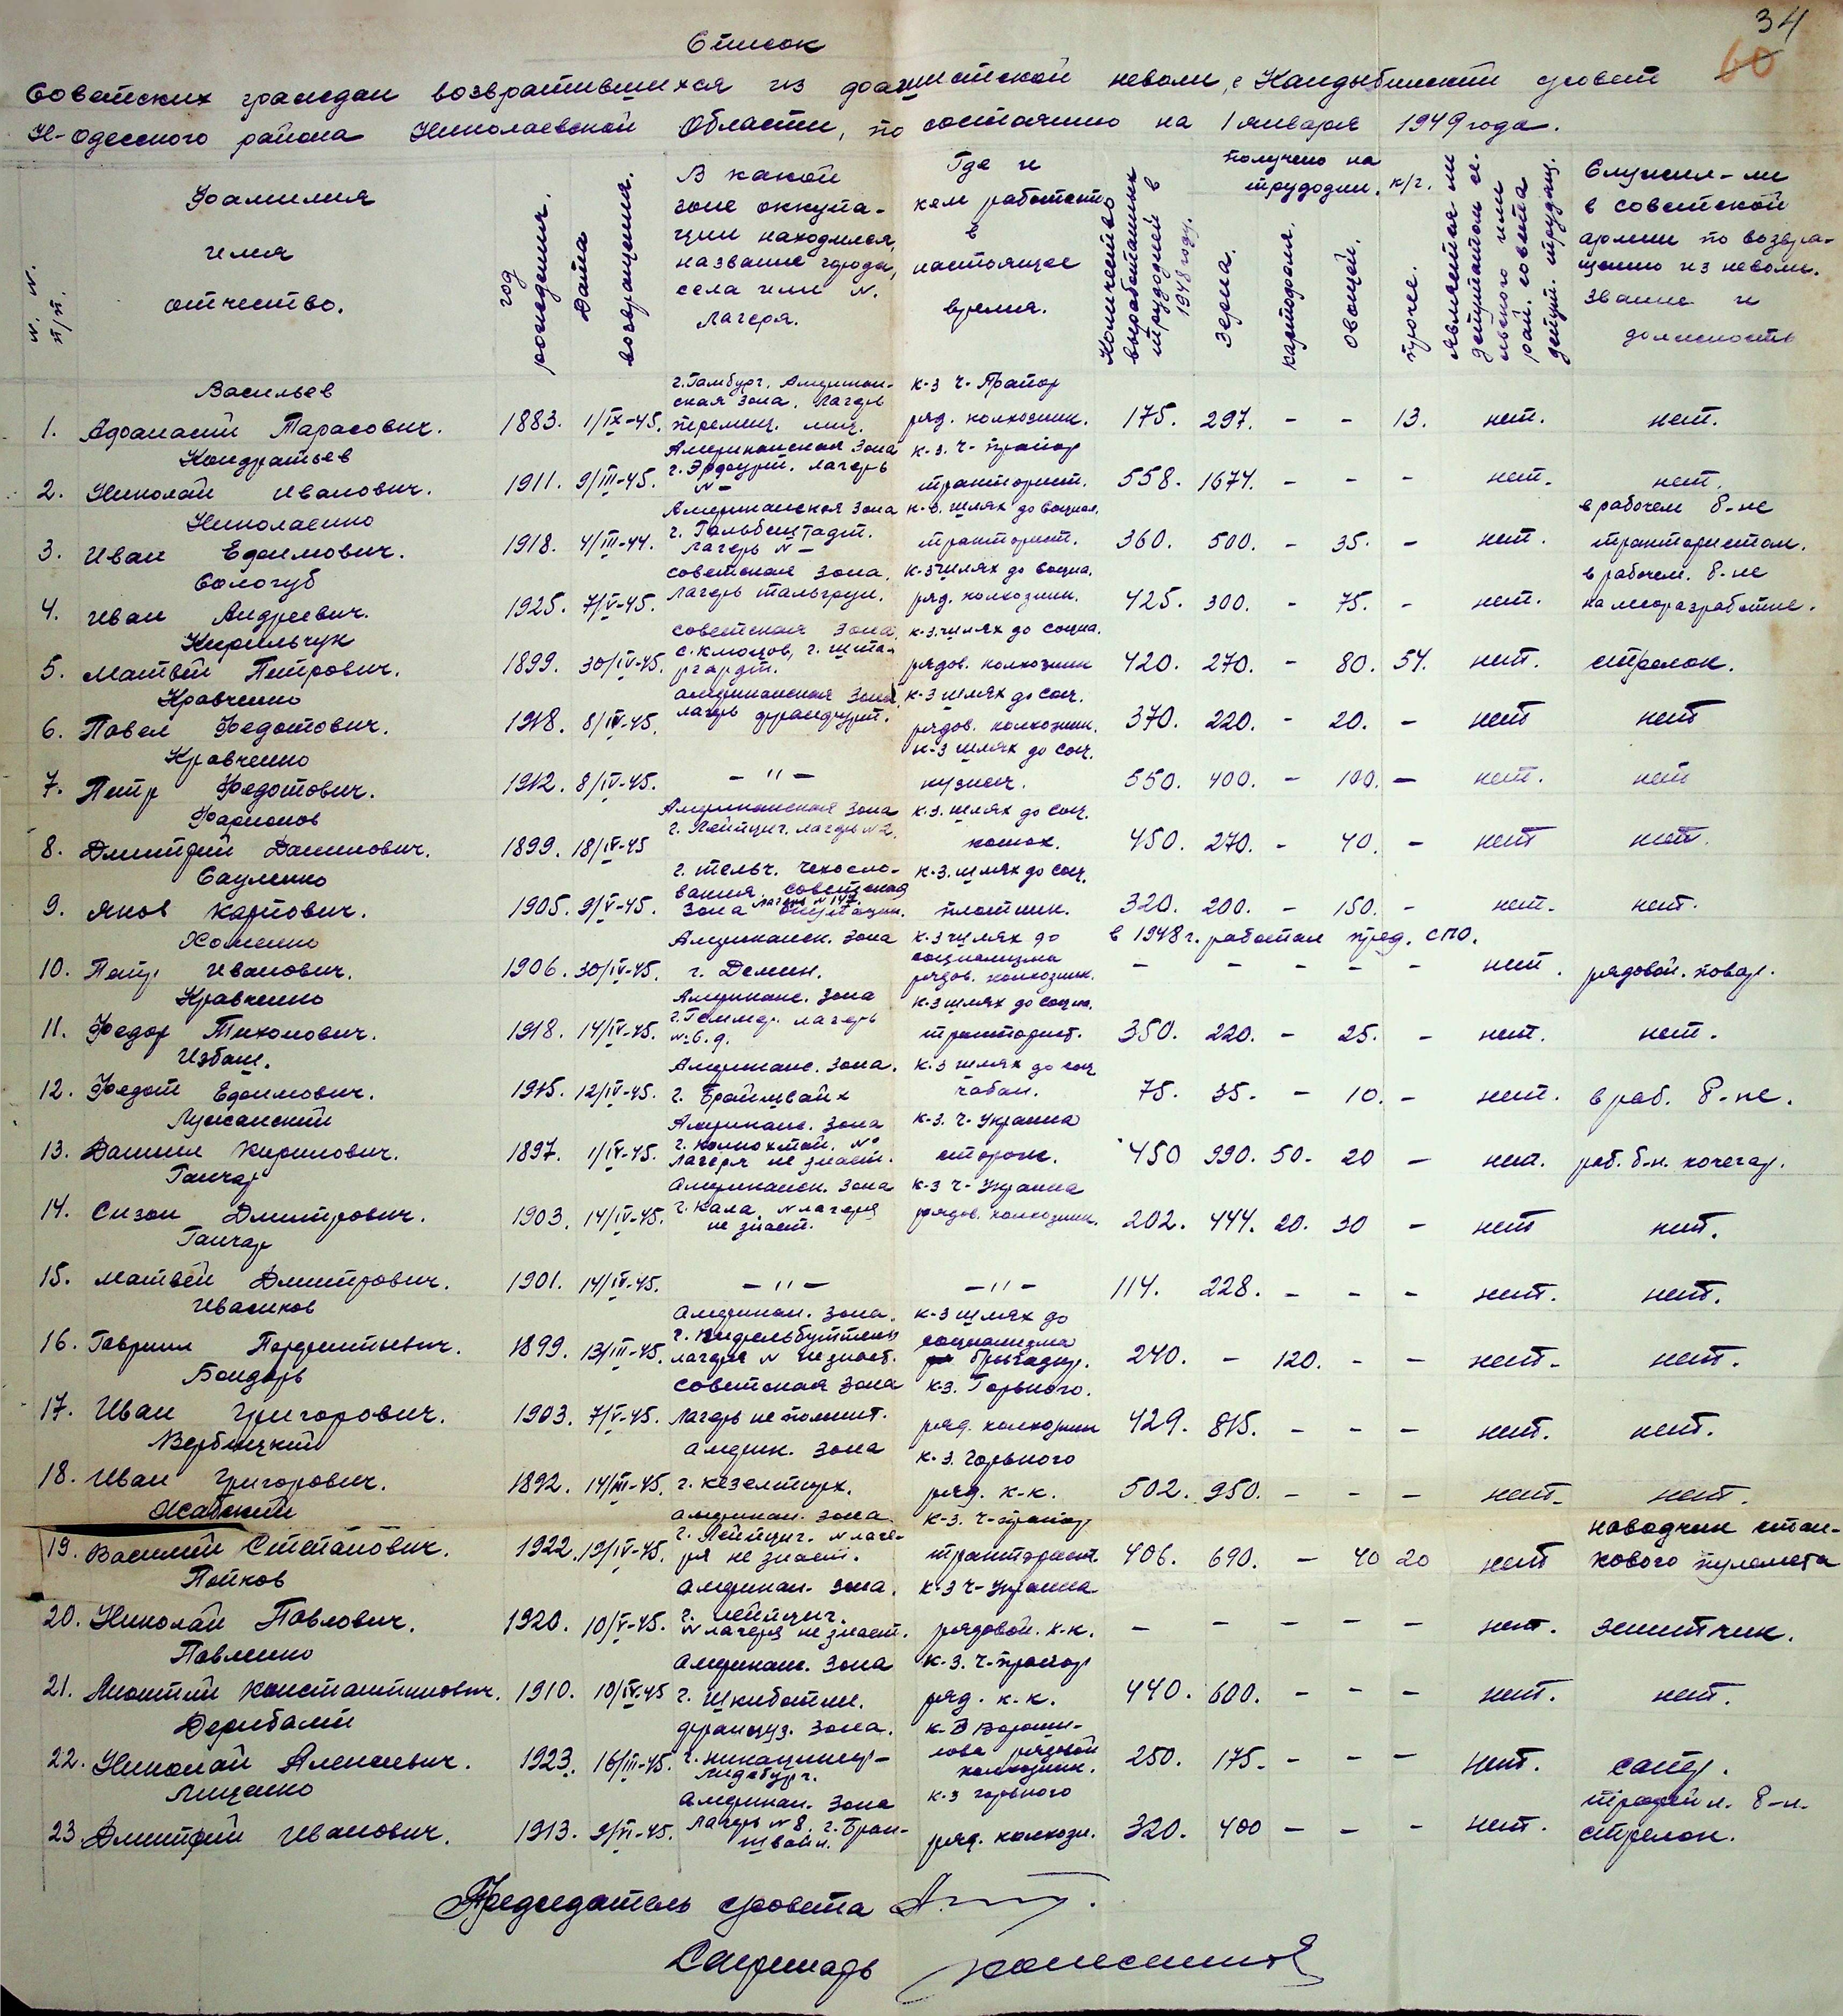 34
60
Список
Советских граждан возвратившихся из фашистской неволи, с Кандыбински с/совет
Н-Одесского района Николаевской Области, по состоянию на 1 января 1949 года.
N. N. п/п.
Фамилия имя отчество.
год рождения.
Дата возвращения.
В какой зоне оккупации находился, название города, села или N. лагеря.
Где и кем работает в настоящее время.
Количество выработанных трудодней в 1948 году.
Получено на трудодни. к/г.
зерна.
картофеля.
овощей.
проче.
Является ли депутатом сельского или рай. совета депут. трудящ.
Служил-ли в советской армии по возвращению из неволи. Звание и должность
1. Васильев Афанасий Тарасович. 1883. 1/IX-45. г. Гамбург. Американская зона. лагерь перемещ. лиц. к-з Ч-Прапор ряд. колхозник. 175. 297. - - 13. нет. нет.
2. Кондратьев Николай Иванович. 1911. 9/III-45. Американская зона г. Эрфурт. лагерь N - к-з. Ч-прапор тракторист. 558. 1674. - - - нет. нет.
3. Николаенко Иван Ефимович. 1918. 4/III-44. Американская зона г. Гальбештадт. лагерь N - к-з. шлях до социал. тракторист. 360. 500. - 35. - нет. в рабочем б-не трактористом.
4. Сологуб Иван Андреевич. 1925. 7/V-45. советская зона. лагерь тальгрун. к-з шлях до социа. ряд. колхозник. 425. 300. - 75. - нет. в рабочем. б-не на лесоразработке.
5. Кирильчук Матвей Петрович. 1899. 30/IV-45. советская зона, с. клюцов, г. штаргардт. к-з. шлях до социа. рядов. колхозник 420. 270. - 80. 54. нет. стрелок.
6. Кравченко Павел Федотович. 1918. 8/IV-45. американская зона, лагерь франфурт. к-з шлях до соц. рядов. колхозник. 370. 220. - 20. - нет нет
7. Кравченко Петр Федотович. 1912. 8/IV-45. - " - к-з шлях до соц. кузнец. 550. 400. - 100. - нет. нет
8. Фарионов Дмитрий Данилович. 1899. 18/IV-45 Американская зона г. Лейпциг. лагерь N 2. к-з. шлях до соц. конюх. 450. 270. - 40. - нет нет.
9. Сауленко Яков Карпович. 1905. 9/V-45. г. тельч. Чехословакия, советская зона оккупации. лагерь N 147. к-з. шлях до соц. плотник. 320. 200. - 150. - нет. нет.
10. Хоменко Петр Иванович. 1906. 30/IV-45. Американск. зона г. Демин. к-з шлях до социализма рядов. колхозник. в 1948 г. работал пред. СПО. - - - - - нет. рядовой. повар.
11. Кравченко Федор Тихонович. 1918. 14/IV-45. Американс. зона лагерь N-6.9. к-з шлях до социа. тракторист. 350. 220. - 25. - нет. нет.
12. Избаш. Федот Ефимович. 1915. 12/IV-45. Американс. зона. г. Брайншвайх к-з шлях до соц чабан. 75. 35. - 10. - нет. в раб. б-не.
13. Лужанский Даниил Кирилович. 1897. 1/IV-45. Американс. зона лагеря не знает. к-з. Ч-Украина сторож. 450 990. 50. 20 - нет. раб. б-н. кочегар.
14. Ганчар Сизон Дмитрович. 1903. 14/IV-45. Американск. зона г. Кала. N лагеря не знает. к-з Ч-Украина рядов. колхозник. 202. 444. 20. 30 - нет нет.
15. Ганчар Матвей Дмитрович. 1901. 14/IV-45. - " - - " - 114. 228. - - - нет. нет.
16. Ивасиков Гавриил Порфентиевич. 1899. 13/III-45. Американ. зона. лагеря N не знает. к-з шлях до социализма бригадир. 240. - 120. - - нет. нет.
17. Бондарь Иван Григорович. 1903. 7/V-45. советская зона лагерь не помнит. к-з. Горького. ряд. колхозник 429. 815. - - - нет. нет.
18. Вербицкий Иван Григорович. 1892. 14/III-45. америк. зона г. кезелтирх. к-з. Горького ряд. к-к. 502. 950. - - - нет. нет.
19. Жабский Василий Степанович. 1922. 19/IV-45. американ. зона. г. Лейпциг. N лагеря не знает. к-з. Ч-прапор тракторист 406. 690. - 40 20 нет наводчик станкового пулемета
20. Попков Николай Павлович. 1920. 10/V-45. американ. зона. г. лейпциг. N лагеря не знает. к-з Ч-Украина рядовой. к-к. - - - - - нет. зенитчик.
21. Павленко Константинович. 1910. 10/IV-45 американс. зона г. Шкиботин. к-з. Ч-прапор ряд. к-к. 440. 600. - - - нет. нет.
22. Николай Алексеевич. 1923. 16/III-45. француз. зона. к-з Ворошилова рядовой колхозник. 250. 175. - - - нет. сапер.
23. Лищенко Дмитрий Иванович. 1913. 9/VI-45. американ. зона лагерь N 8. г. Браншвайк. к-з горького ряд. колхозн. 320. 400 - - - нет. б-н. стрелок.
Председатель с/совета
Секретарь